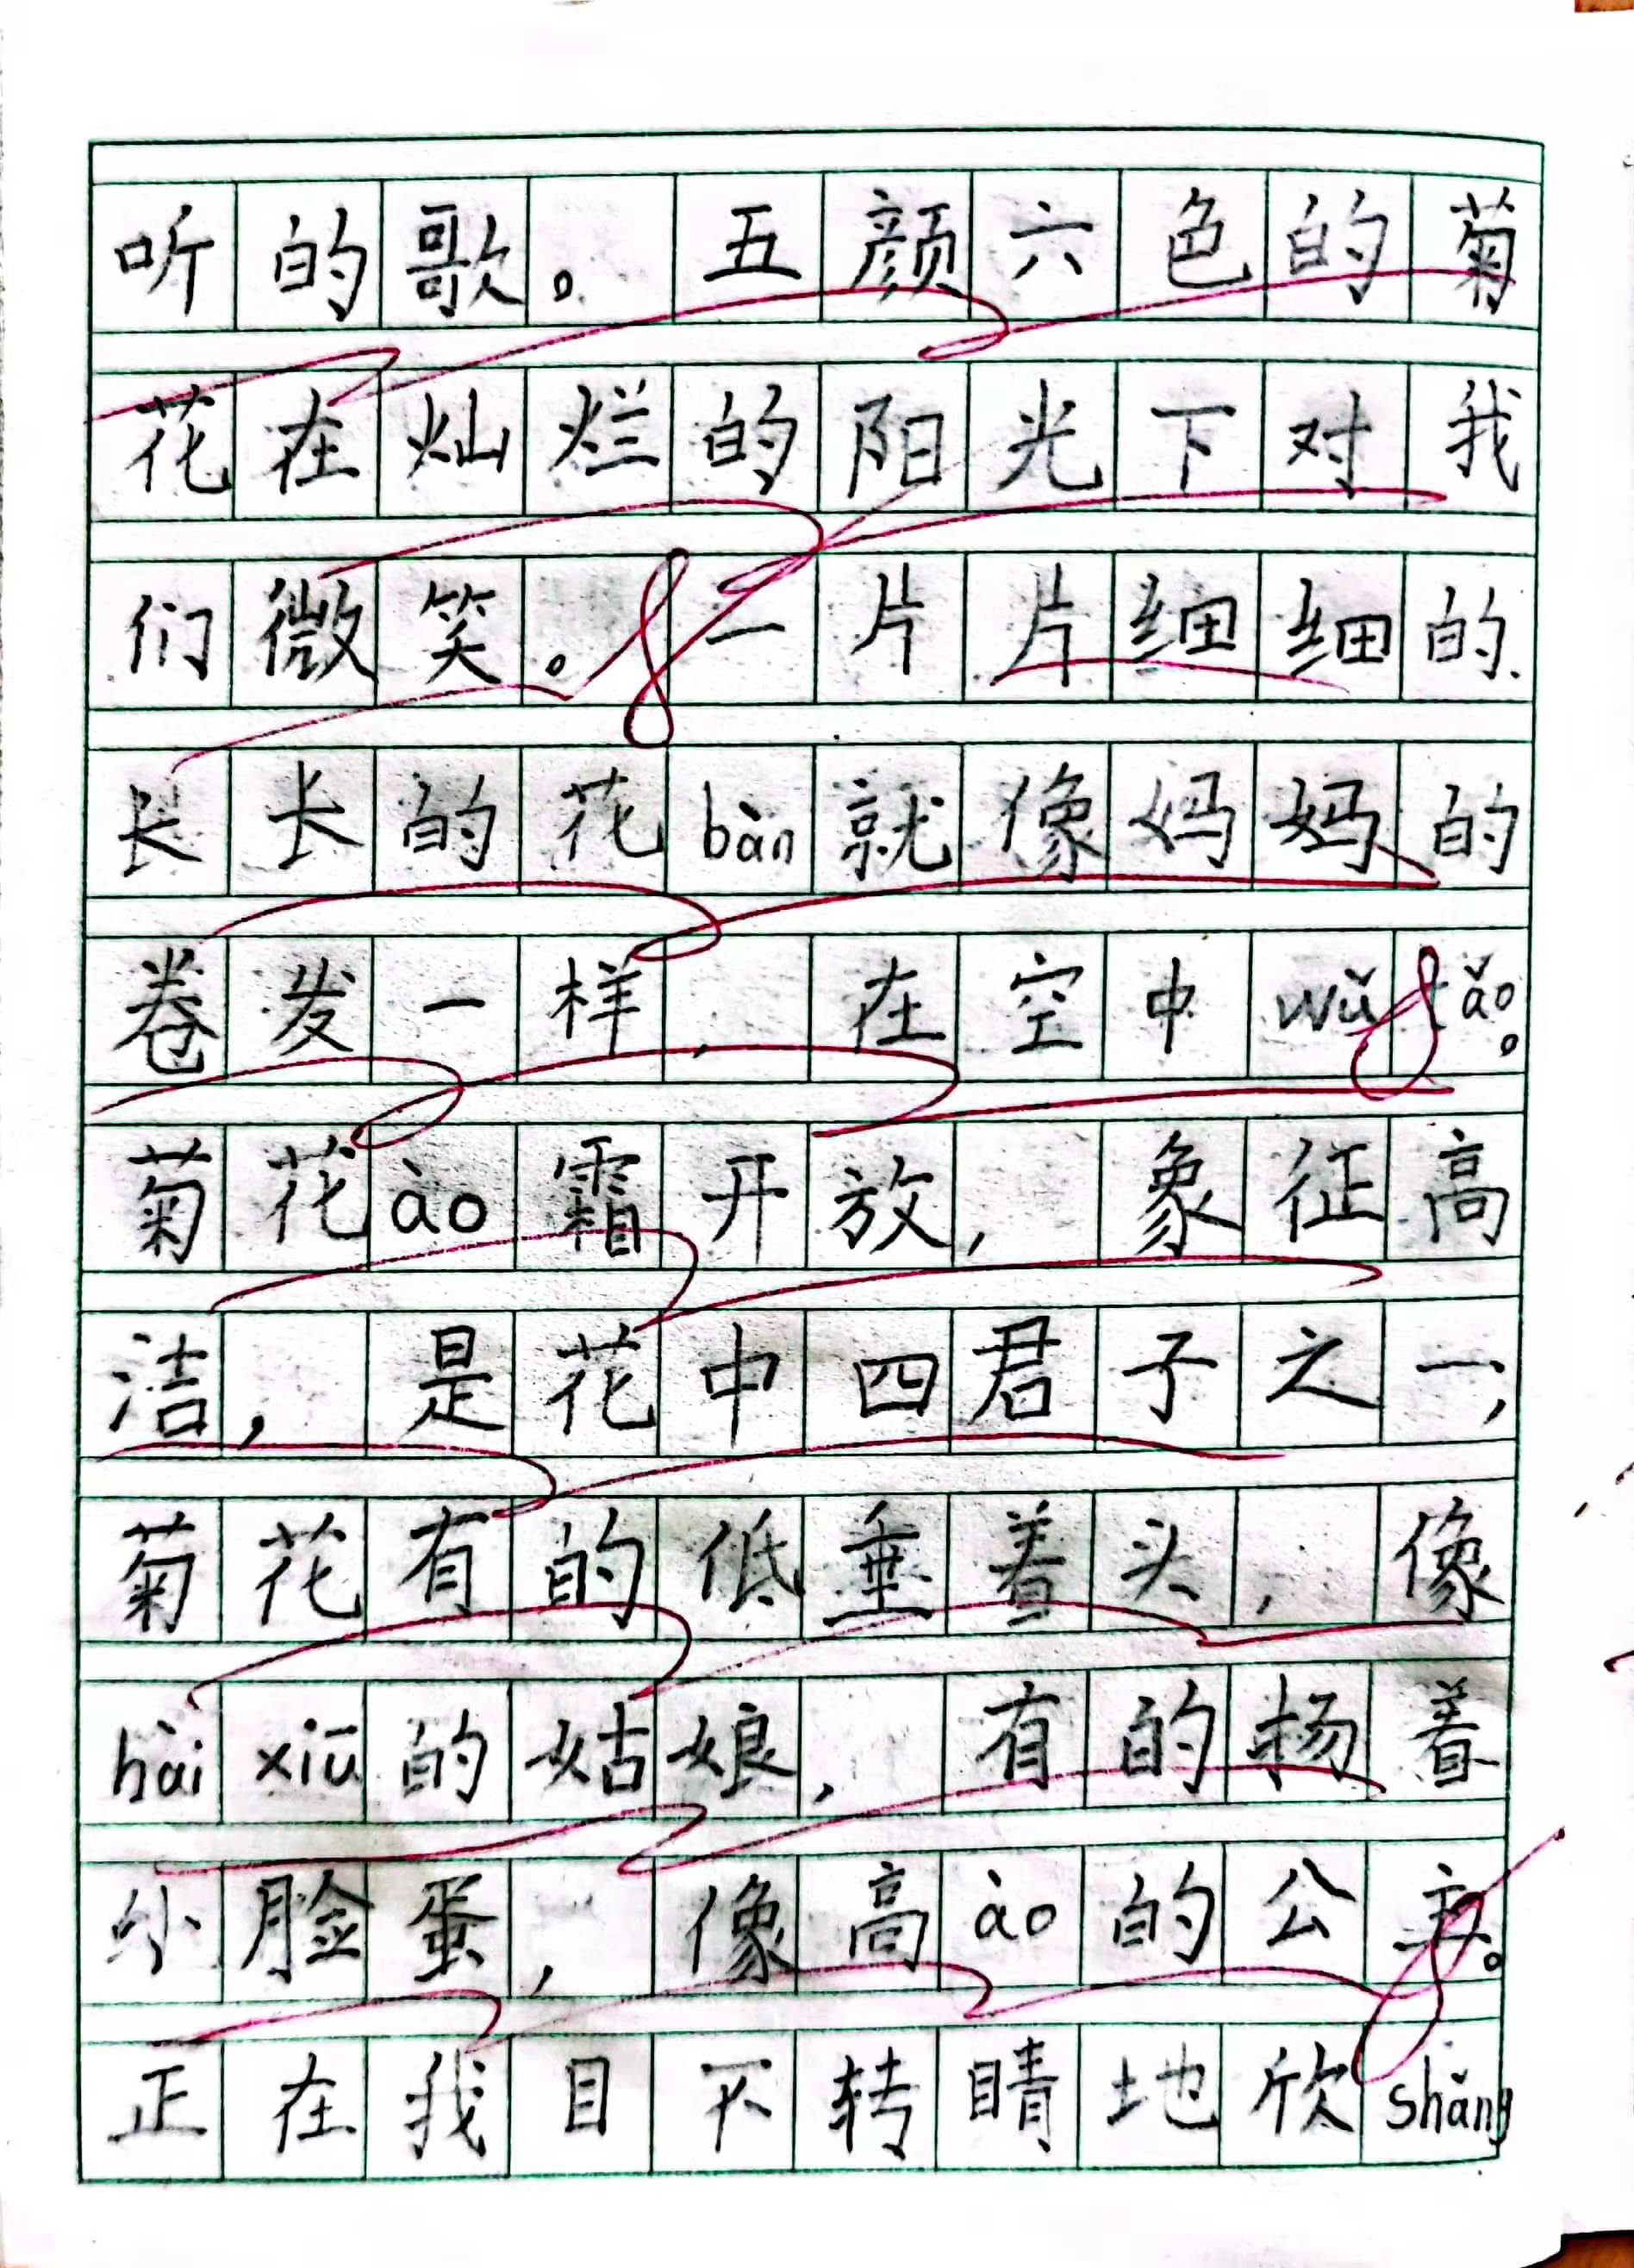 听的歌。五颜六色的菊
花在灿烂的阳光下对我
们微笑。一片片细细的
长长的花bàn就像妈妈的
卷发一样,在空中wǔdǎo。
菊花ào霜开放,象征高
洁,是花中四君子之一,
菊花有的低垂着头,像
hàixiū的姑娘,有的扬着
小脸蛋,像高ào的公主。
正在我目不转睛地欣shǎng